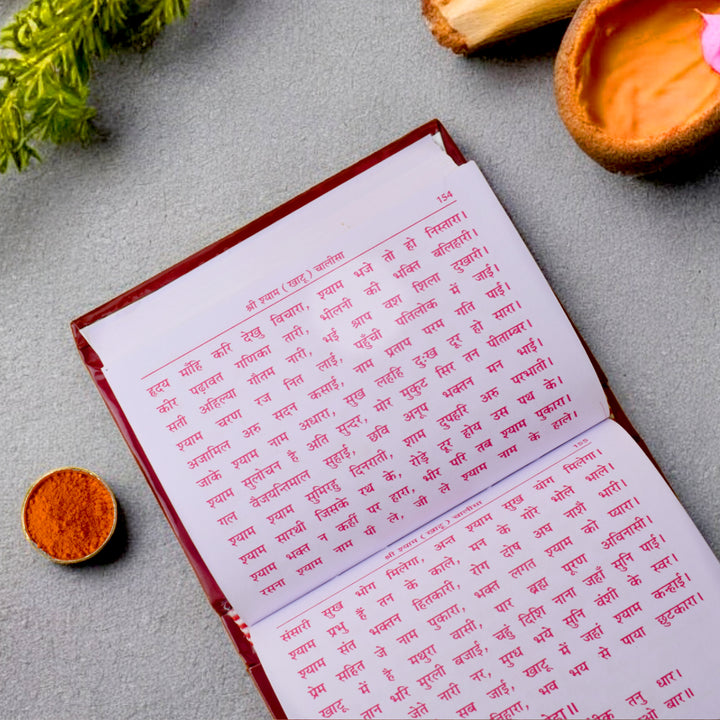 154
श्री श्याम ( खाटू ) चालीसा
हृदय माँहि करि देखु विचारा, श्याम भजे तो हो निस्तारा।
कीर पढ़ावत गणिका तारी, भीलनी की भक्ति बलिहारी।
सती अहिल्या गौतम नारी, भई श्राप वश शिला दुखारी।
श्याम चरण रज नित लाई, पहुँची पतिलोक में जाई।
अजामिल अरु सदन कसाई, नाम प्रताप परम गति पाई।
जाके श्याम नाम अधारा, सुख लहहि दुःख दूर हो सारा।
श्याम सुलोचन है अति सुन्दर, मोर मुकुट सिर तन पीताम्बर।
गल वैजयन्तिमाल सुहाई, छवि अनूप भक्तन मन भाई।
श्याम सुमिरहु दिनराती, शाम दुपहरि अरु परभाती।
श्याम सारथी जिसके रथ के, रोड़े दूर होय उस पथ के।
श्याम भक्त न कहीं पर हारा, भीर परि तब श्याम पुकारा।
रसना श्याम नाम पी ले, जी ले श्याम नाम के हाले।
155
श्री श्याम ( खाटू ) चालीसा
संसारी सुख भोग मिलेगा, अन्त श्याम सुख योग मिलेगा।
श्याम प्रभु हैं तन के काले, मन के गोरे भोले भाले।
श्याम संत भक्तन हितकारी, रोग दोष अघ नाशैं भारी।
प्रेम सहित जे नाम पुकारा, भक्त लगत श्याम को प्यारा।
खाटू में है मथुरा वासी, पार ब्रह्म पूरण अविनासी।
तान भरि मुरली बजाई, चहुं दिशि नाना जहाँ सुनि पाई।
जेते नारी नर, मुग्ध भये सुनि वंशी के स्वर।
जाई, खाटू में जहां श्याम कन्हाई।
सब भव भय से पाया छुटकारा।
तनु धार।
बार॥